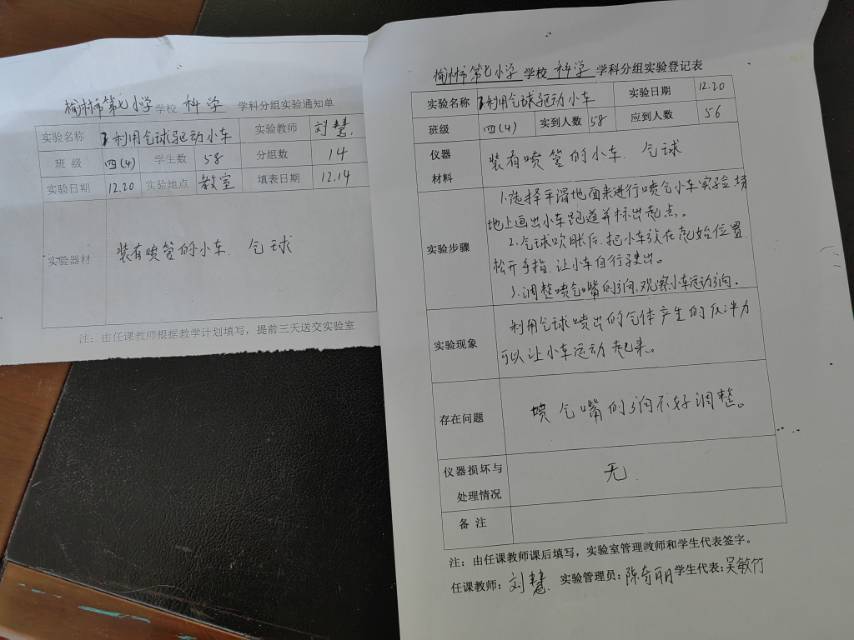 榆树市第七小学 学校 科学 学科分组实验通知单
实验名称 利用气球驱动小车 实验教师 刘慧
班 级 四(4) 学生数 58 分组数 14
实验日期 12.20 实验地点 教室 填表日期 12.14
实验器材 装有喷管的小车 气球
注：由任课教师根据教学计划填写，提前三天送交实验室
榆树市第七小学 学校 科学 学科分组实验登记表
实验名称 利用气球驱动小车 实验日期 12.20
班级 四(4) 实到人数 58 应到人数 56
仪器
材料
装有喷管的小车 气球
实验步骤
1.选择平滑地面来进行喷气小车实验场
地上画出小车跑道并标出起点。
2.气球吹胀后,把小车放在起始位置
松开手指,让小车自行驶出。
3.调整喷气嘴的方向,观察小车运动方向。
实验现象
利用气球喷出的气体产生的反冲力
可以让小车运动起来。
存在问题
喷气嘴的方向不好调整。
仪器损坏与
处理情况
无
备 注
注：由任课教师课后填写，实验室管理教师和学生代表签字。
任课教师：刘慧 实验管理员：陈奇丽 学生代表：吴敏行